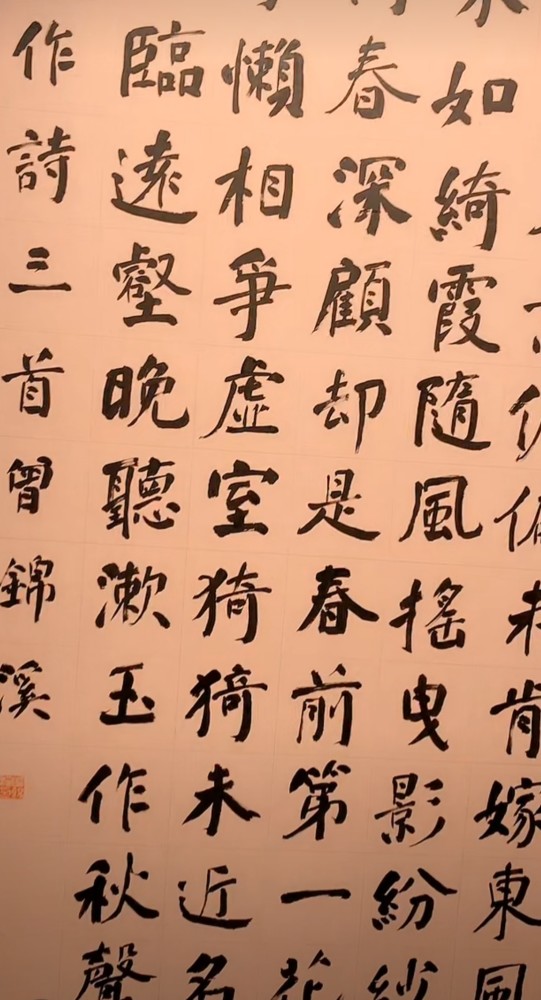 肯嫁東風
如綺霞隨風搖曳影紛
春深顧却是春前第一花
懶相爭虛室猗猗未近名
臨遠壑晚聽漱玉作秋聲
作詩三首曾錦溪